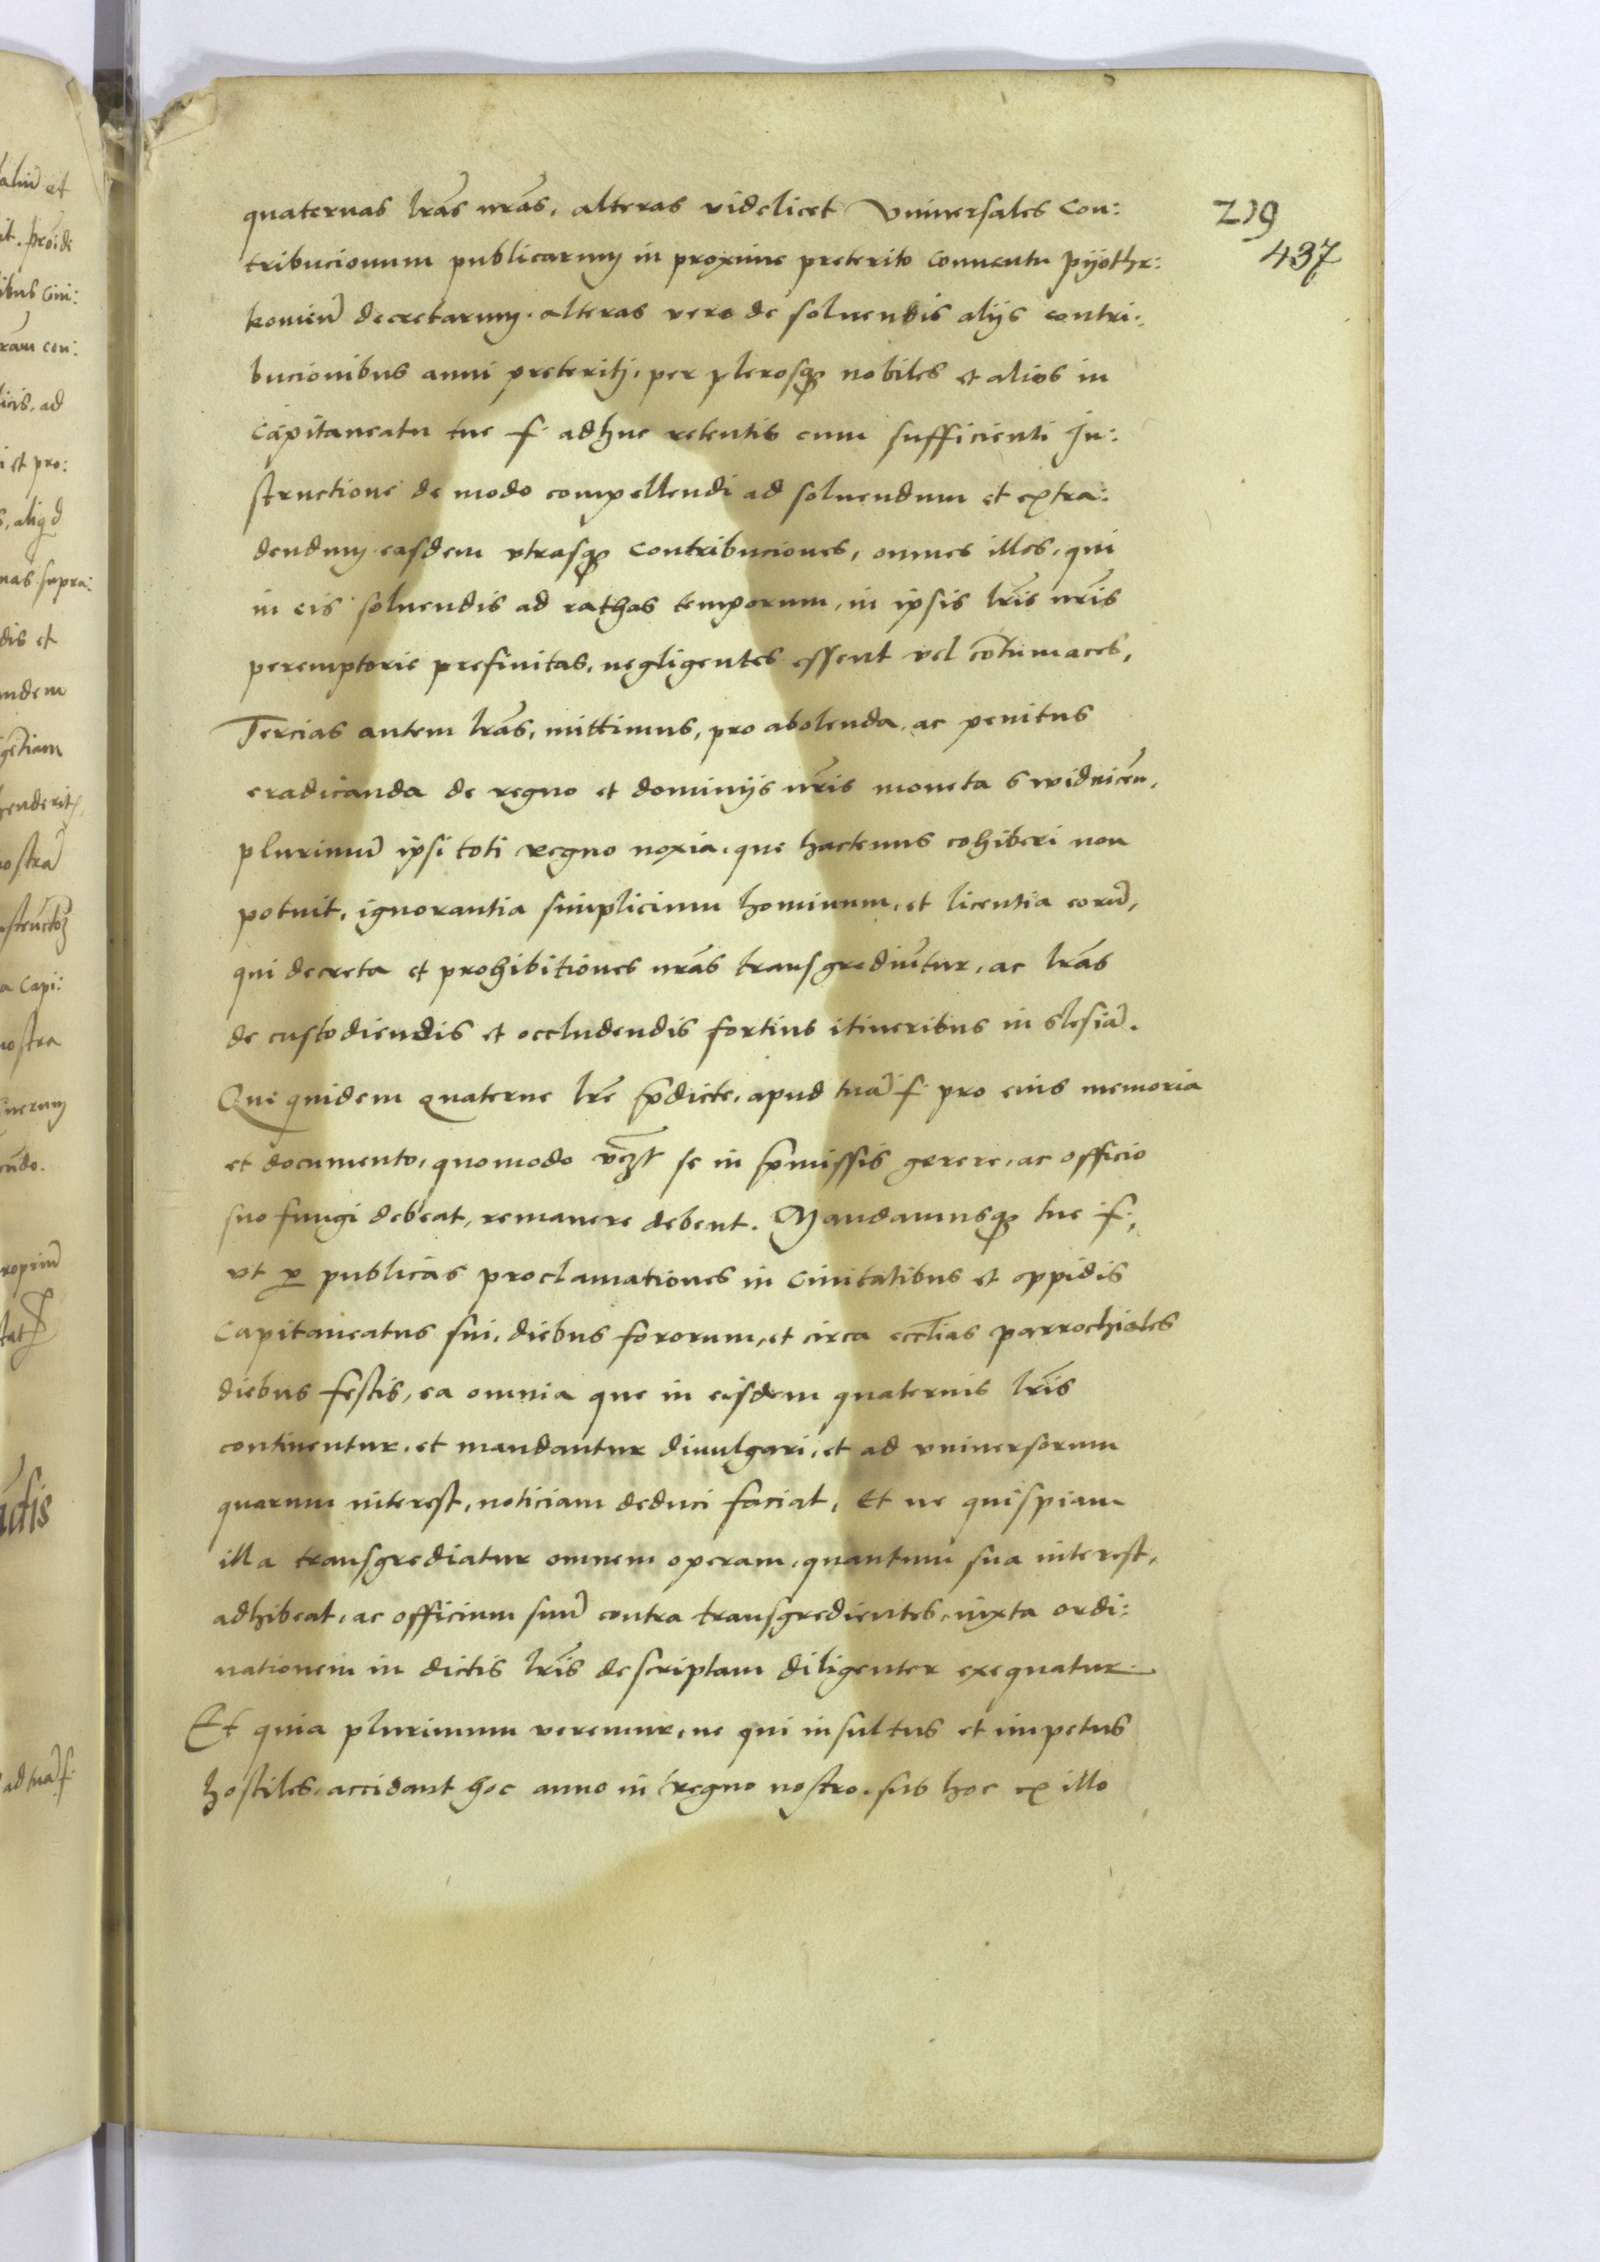 219
437
quaternas lr̃as nr̃as, alteras videlicet Vniuersales Con:
tribucionum publicarum in proxime preterito Conuentu Pijothr:
kouien̄ decretarum. alteras vero de soluendis alijs contri:
bucionibus anni preteriti, per plerosqȝ nobiles et alios in
Capitaneatu tue f. adhuc retentis cum sufficienti In:
structione de modo compellendi ad soluendum et extra:
dendum easdem vtrasqȝ Contribuciones, omnes illos, qui
in eis soluendis ad rathas temporum, in ipsis lr̃is nr̃is
peremptorie prefinitas, negligentes essent vel cōtumaces,
Tercias autem lr̃as, mittimus, pro abolenda, ac penitus
eradicanda de regno et dominijs nr̃is moneta Swidnicen̄,
plurimū ipsi toti regno noxia, que hactenus cohiberi non
potuit, ignorantia simplicium hominum, et licentia eorū,
qui decreta et prohibitiones nr̃as transgrediūtur, ac lr̃as
de custodiendis et occludendis fortius itineribus in Slesiā.
Que quidem quaterne lr̃e p̄dicte, apud tuā f. pro eius memoria
et documento, quomodo vcȝt se in p̄missis gerere, ac officio
suo fungi debeat, remanere debent. Mandamusqȝ tue f.
vt p̱ publicas proclamationes in Ciuitatibus et oppidis
Capitaneatus sui, diebus fororum, et circa eccl̃ias parrochiales
diebus festis, ea omnia que in eisdem quaternis lr̃is
continentur, et mandantur diuulgari, et ad vniuersorum
quorum interest, noticiam deduci faciat, Et ne quispiam
illa transgrediatur omnem operam, quantum sua interest,
adhibeat, ac officium suū contra transgredientes, iuxta ordi:
nationem in dictis lr̃is descriptam diligenter exequatur.
Et quia plurimum veremur, ne qui insultus et impetus
hostiles, accidant hoc anno in regno nostro, sub hoc ex illo